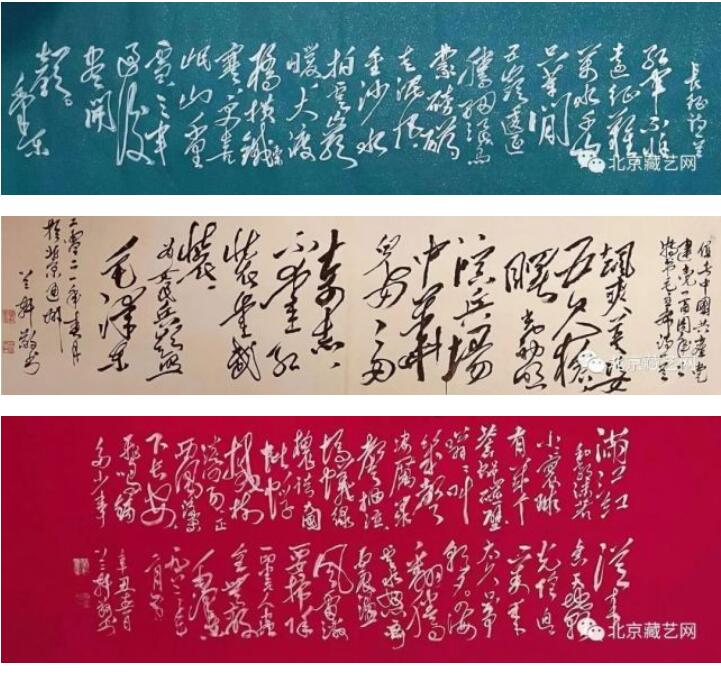 红军不怕
远征难
万水千山
只等闲
五岭逶迤
腾细浪乌
蒙磅礴
走泥丸
金沙水
拍云崖
暖大渡
桥横铁索
寒更喜
岷山千里
雪三军
过后
尽开
颜
毛泽东
北京藏艺网
值此中国共产党
建党一百周年之
飒爽英姿
五尺枪
曙光初照
演兵场
中华
儿女多
奇志
不爱红
装爱武
装
为女民兵题照
毛泽东
二零二一年春月
敬书
北京藏艺网
满江红
和郭沫若
小小寰球
有几个
苍蝇碰壁
嗡嗡叫
几声
凄厉几
声抽泣
蚂蚁缘
槐夸大国
蚍蜉
撼树
谈何易正
西风落叶
下长安
飞鸣镝
多少事
从来
急天地转
光阴迫
一万年
太久只争
朝夕四海
翻腾
云水怒五洲
震荡
风雷激
要扫除
一切害人虫
全无敌
毛泽东
辛丑五月
北京藏艺网